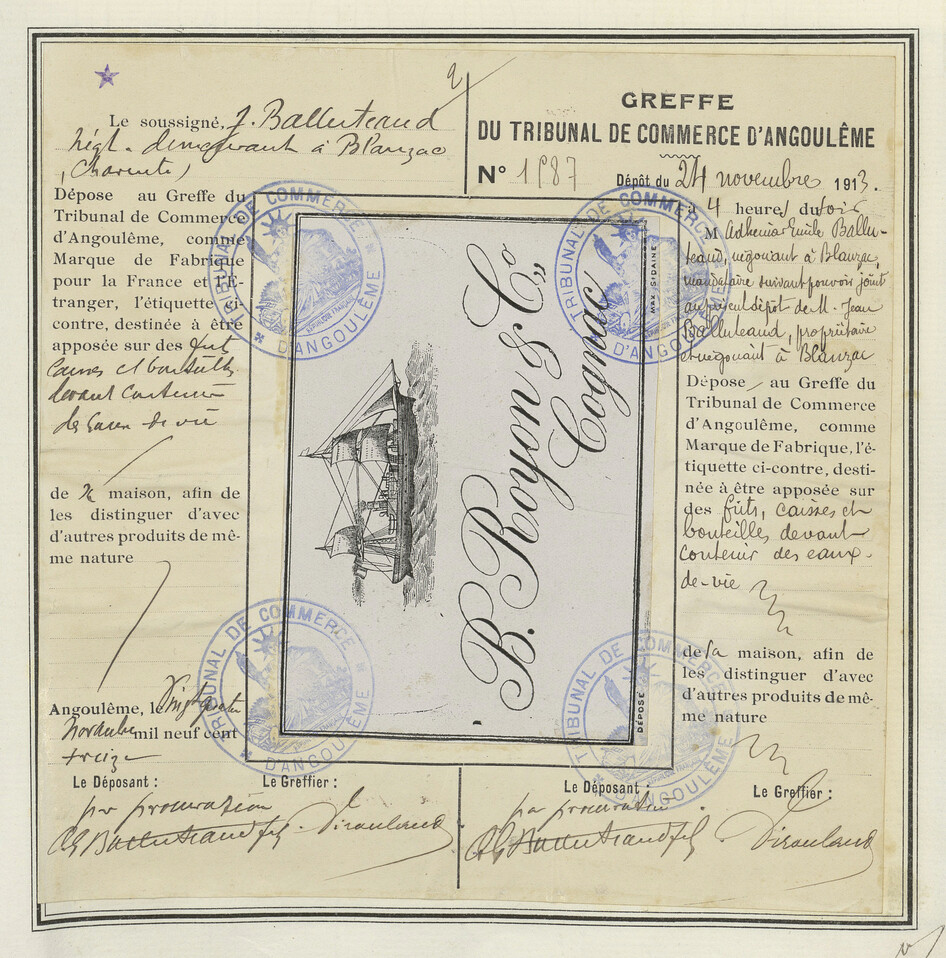 2
Le soussigné, J. Balluteaud
négt. demeurant à Blanzac
(Charente)
Dépose au Greffe du
Tribunal de Commerce
d'Angoulême, comme
Marque de Fabrique
pour la France et l'É-
tranger, l'étiquette ci-
contre, destinée à être
apposée sur des fûts
caisses et bouteilles
devant contenir
des Eaux-de-vie
de maison, afin de
les distinguer d'avec
d'autres produits de mê-
me nature
Angoulême, le Vingt quatre
Novembre mil neuf cent
treize
Le Déposant :
Le Greffier :
par procuration
Balluteaud fils
GREFFE
DU TRIBUNAL DE COMMERCE D'ANGOULÊME
N° 1987
Dépôt du 24 novembre 1913.
à 4 heures du soir
M Adhemar Emile Ballu-
teaud, négociant à Blanzac,
mandataire suivant pouvoir joint
au dépôt de M. Jean
Balluteaud, propriétaire
et négociant à Blanzac
Dépose au Greffe du
Tribunal de Commerce
d'Angoulême, comme
Marque de Fabrique, l'é-
tiquette ci-contre, desti-
née à être apposée sur
des fûts, caisses et
bouteilles devant
contenir des eaux-
de-vie
de sa maison, afin de
les distinguer d'avec
d'autres produits de mê-
me nature
Le Déposant :
Le Greffier :
par procuration
Balluteaud fils
B. Royon & Co
Cognac
MAX SIDAINE
DÉPOSÉ
TRIBUNAL DE COMMERCE
D'ANGOULÊME
RÉPUBLIQUE FRANÇAISE
TRIBUNAL DE COMMERCE
D'ANGOULÊME
TRIBUNAL DE COMMERCE
D'ANGOULÊME
TRIBUNAL DE COMMERCE
D'ANGOULÊME